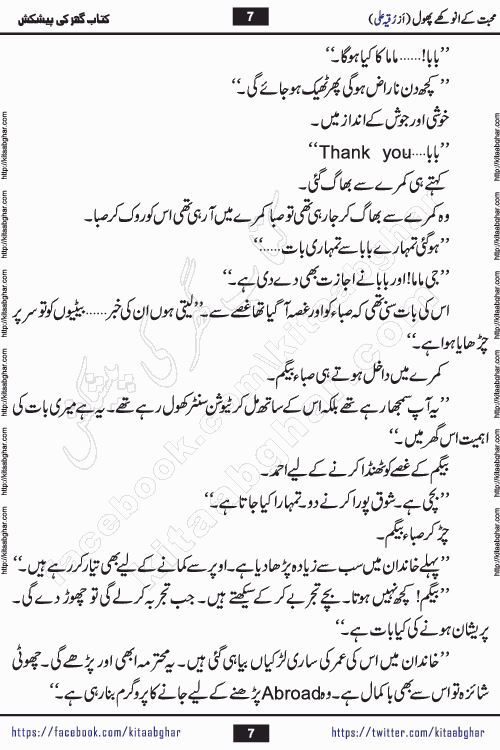 محبت کے انوکھے پھول (از رقیہ علی) 7 کتاب گھر کی پیشکش
’’بابا!......ماما کا کیا ہوگا۔‘‘
’’کچھ دن ناراض ہوگی پھر ٹھیک ہو جائے گی۔‘‘
خوشی اور جوش کے انداز میں۔
’’بابا....Thank you‘‘
کہتے ہی کمرے سے بھاگ گئی۔
وہ کمرے سے بھاگ کر جا رہی تھی تو صبا کمرے میں آ رہی تھی اس کو روک کر صبا۔
’’ہو گئی تمہارے بابا سے تمہاری بات......‘‘
’’جی ماما! اور بابا نے اجازت بھی دے دی ہے۔‘‘
اس کی بات سنی تھی کہ صباء کو اور غصہ آ گیا تھا غصے سے۔ ’’لیتی ہوں ان کی خبر......بیٹیوں کو تو سر پر
چڑھایا ہوا ہے۔‘‘
کمرے میں داخل ہوتے ہی صباء بیگم۔
’’یہ آپ سمجھا رہے تھے بلکہ اس کے ساتھ مل کر ٹیوشن سنٹر کھول رہے تھے۔ یہ ہے میری بات کی
اہمیت اس گھر میں۔‘‘
بیگم کے غصے کو ٹھنڈا کرنے کے لیے احمد۔
’’بچی ہے۔ شوق پورا کرنے دو۔ تمہارا کیا جاتا ہے۔‘‘
چڑ کر صباء بیگم۔
’’پہلے خاندان میں سب سے زیادہ پڑھا دیا ہے۔ اوپر سے کمانے کے لیے بھی تیار کر رہے ہیں۔‘‘
’’بیگم! کچھ نہیں ہوتا۔ بچے تجربے کر کے سیکھتے ہیں۔ جب تجربہ کر لے گی تو چھوڑ دے گی۔
پریشان ہونے کی کیا بات ہے۔‘‘
’’خاندان میں اس کی عمر کی ساری لڑکیاں بیاہی گئی ہیں۔ یہ محترمہ ابھی اور پڑھے گی۔ چھوٹی
شائزہ تو اس سے بھی باکمال ہے۔ وہ Abroad پڑھنے کے لیے جانے کا پروگرم بنا رہی ہے۔‘‘
https://facebook.com/kitaabghar 7 https://twitter.com/kitaabghar
http://kitaabghar.com
کتاب گھر کی پیشکش
facebook.com/kitaabghar
kitaabghar.com